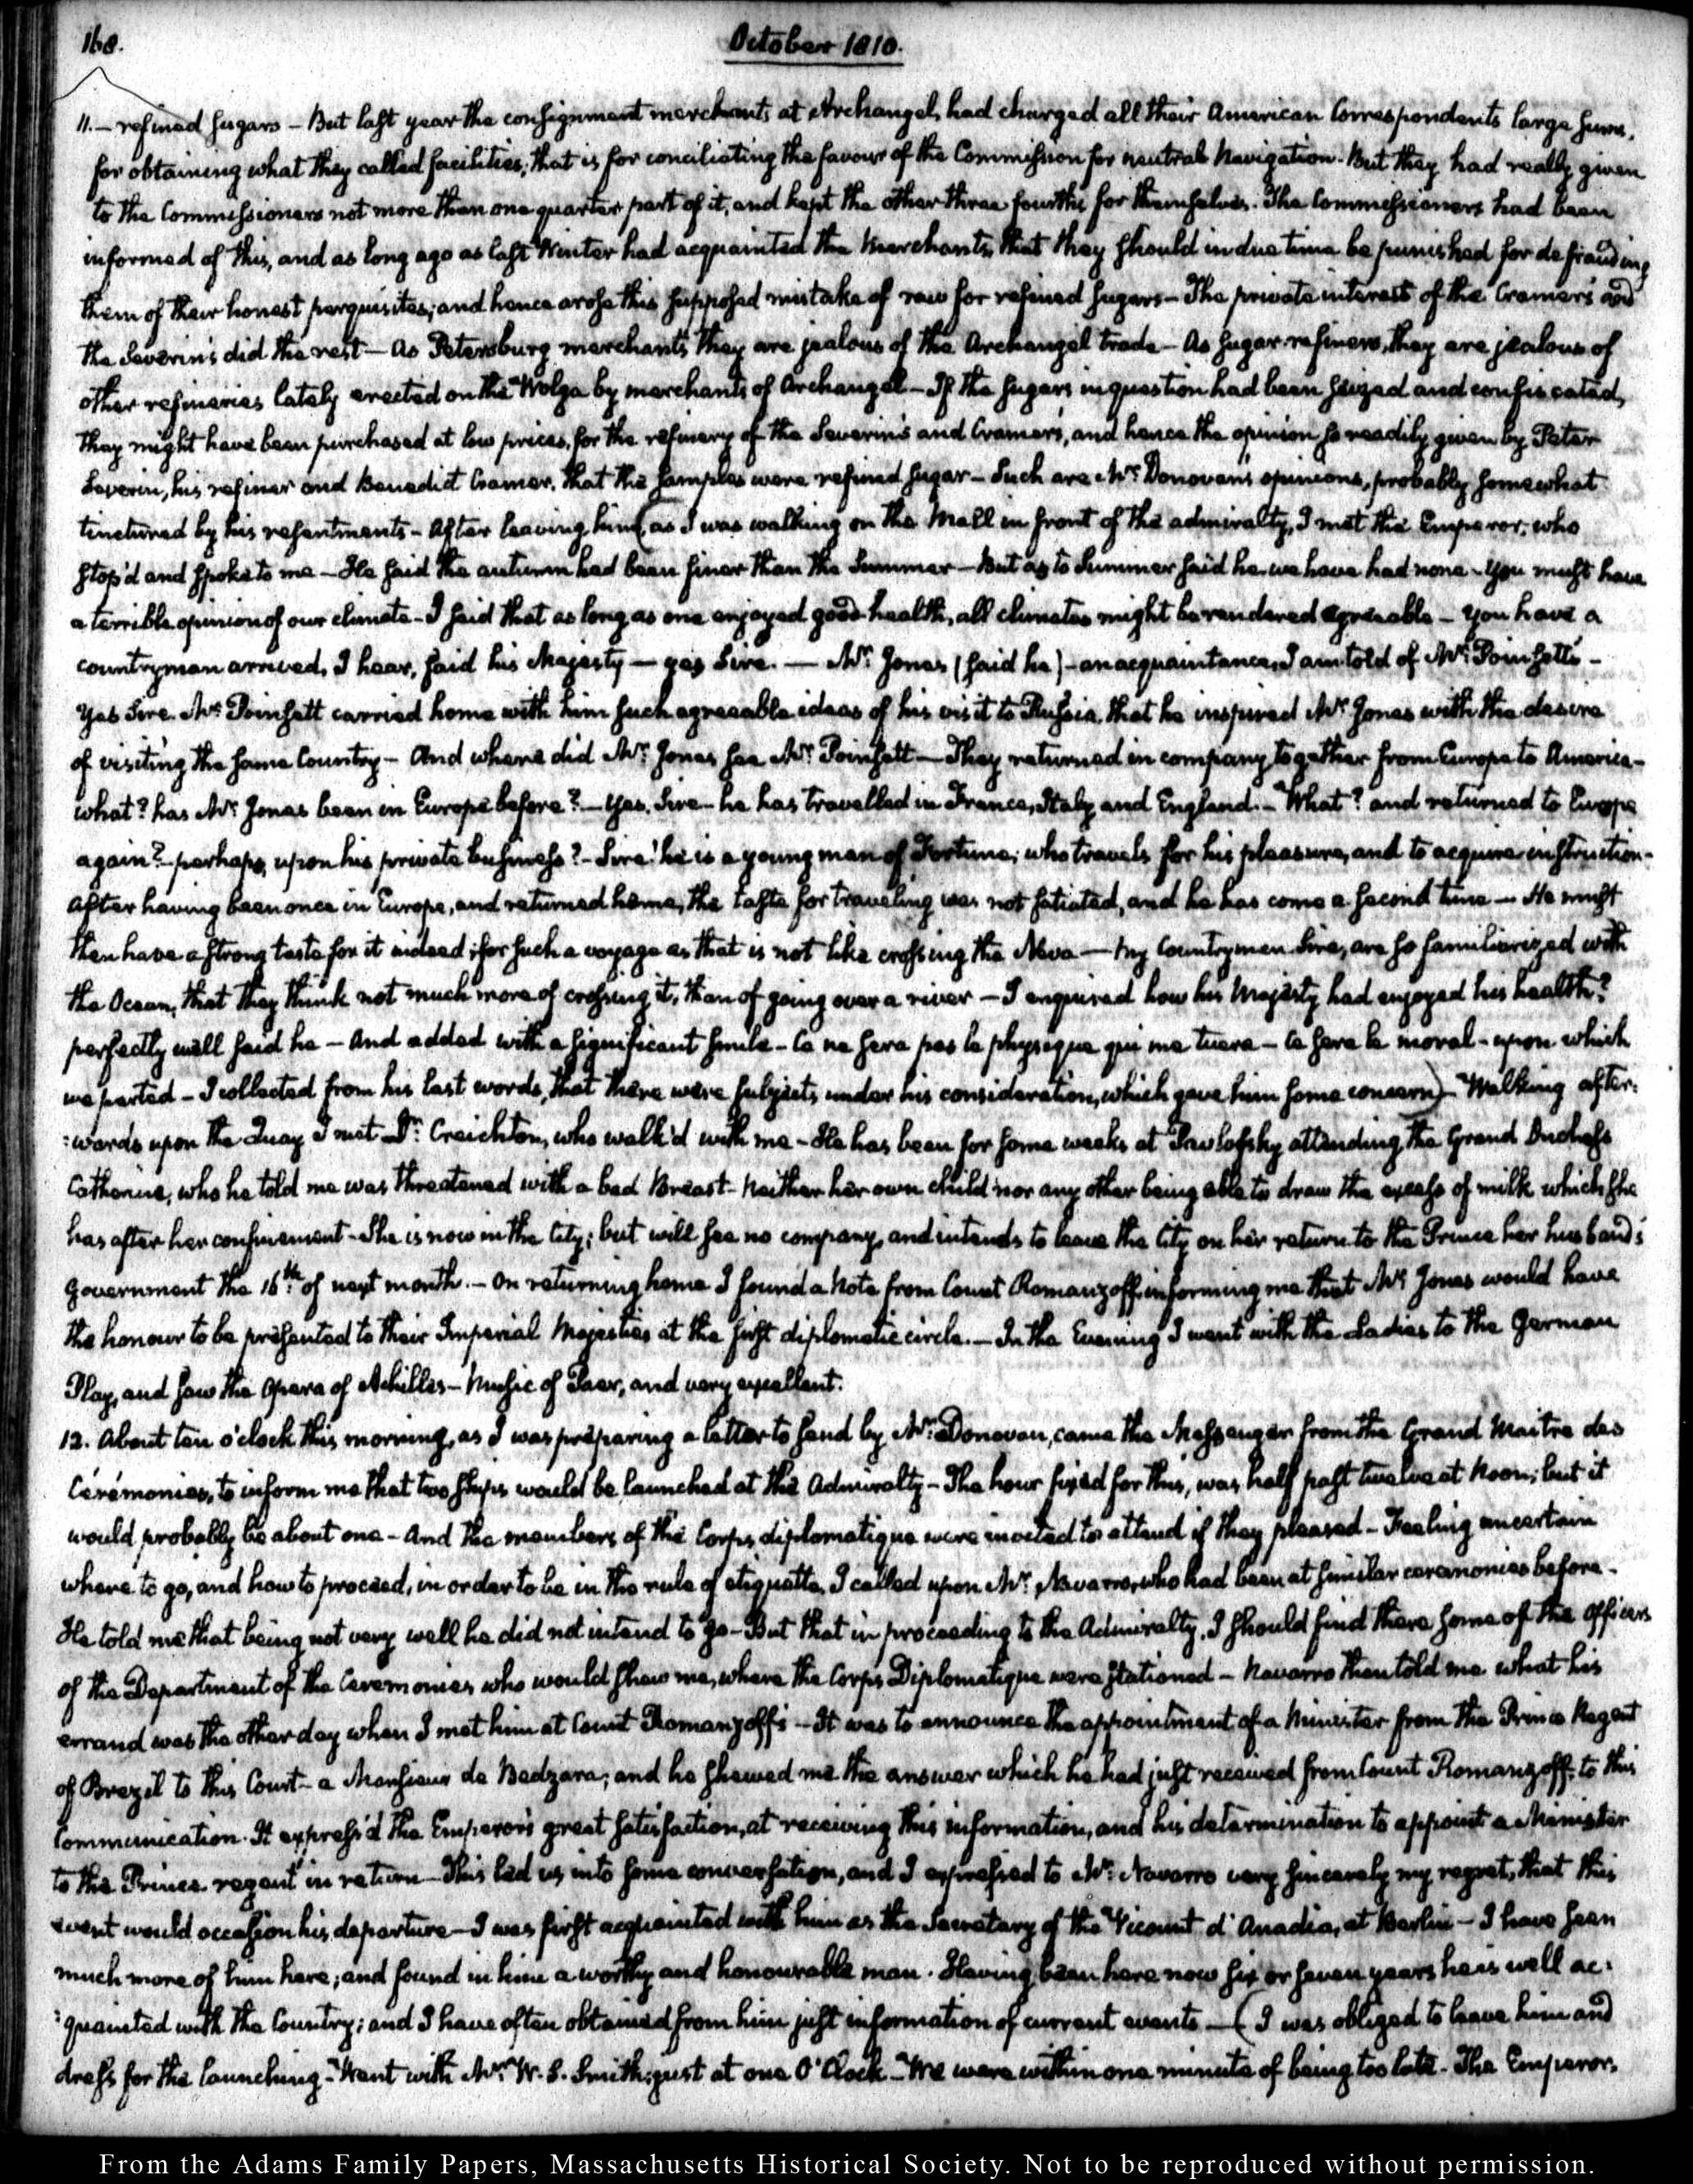 168.
October 1810.
11.— refined sugars — But last year the consignment merchants at Archangel, had charged all their American Correspondents large sums,
for obtaining what they called facilities; that is for conciliating the favour of the Commission for neutral Navigation. But they had really given
to the Commissioners not more than one quarter part of it, and kept the other three fourths for themselves. The Commissioners had been
informed of this, and as long ago as last Winter had acquainted the Merchants, that they should in due time be punished for defrauding
them of their honest perquisites; and hence arose this supposed mistake of raw for refined sugars — The private interest of the Cramer's and
the Severin's did the rest — As Petersburg merchants they are jealous of the Archangel trade — As sugar refiners, they are jealous of
other refineries lately erected on the Wolga by merchants of Archangel — If the sugars in question had been seized and confiscated,
they might have been purchased at low prices, for the refinery of the Severin's and Cramer's, and hence the opinion so readily given by Peter
Severin, his refiner and Benedict Cramer, that the samples were refined sugar — Such are Mr. Donovan's opinions, probably somewhat
tinctured by his resentments — After leaving him (as I was walking on the Mall in front of the admiralty, I met the Emperor, who
stop'd and spoke to me — He said the autumn had been finer than the Summer — But as to Summer said he we have had none — You must have
a terrible opinion of our climate — I said that as long as one enjoyed good health, all climates might be rendered agreeable — you have a
countryman arrived, I hear, said his Majesty — yes Sire. — Mr. Jones (said he) — an acquaintance, I am told of Mr. Poinsett's —
Yes Sire. Mr. Poinsett carried home with him such agreeable ideas of his visit to Russia, that he inspired Mr. Jones with the desire
of visiting the same Country — And where did Mr. Jones see Mr. Poinsett — They returned in company together from Europe to America —
what? has Mr. Jones been in Europe before? — Yes, Sire — he has travelled in France, Italy and England. — What? and returned to Europe
again? perhaps, upon his private business? — Sire! he is a young man of Fortune; who travels for his pleasure, and to acquire instruction —
after having been once in Europe, and returned home, the taste for traveling was not satiated, and he has come a second time — He must
then have a strong taste for it indeed; for such a voyage as that is not like crossing the Neva — My Countrymen Sire, are so familiarized with
the Ocean, that they think not much more of crossing it, than of going over a river — I enquired how his Majesty had enjoyed his health?
perfectly well said he — And added with a significant smile — Ce ne sera pas le physique qui me tuera — Ce sera le moral — upon which
we parted — I collected from his last words, that there were subjects under his consideration, which gave him some concern) — Walking after:
:wards upon the Quay I met Dr. Creichton, who walk'd with me — He has been for some weeks at Pawlofsky attending the Grand Duchess
Catherine, who he told me was threatened with a bad Breast — Neither her own child nor any other being able to draw the excess of milk which she
has after her confinement — She is now in the City; but will see no company, and intends to leave the City on her return to the Prince her husband's
government the 16th. of next month. — On returning home I found a Note from Count Romanzoff informing me that Mr. Jones would have
the honour to be presented to their Imperial Majesties at the first diplomatic circle. — In the Evening I went with the Ladies to the German
Play, and saw the Opera of Achilles — Music of Paer, and very excellent.
12. About ten o'clock this morning, as I was preparing a letter to send by Mr. Donovan, came the Messenger from the Grand Maitre des
Cérémonies, to inform me that two ships would be launched at the Admiralty — The hour fixed for this, was half past twelve at Noon; but it
would probably be about one — And the members of the Corps diplomatique were invited to attend if they pleased — Feeling uncertain
where to go, and how to proceed, in order to be in the rule of etiquette, I called upon Mr. Navarro, who had been at similar ceremonies before —
He told me that being not very well he did not intend to go — But that in proceeding to the Admiralty, I should find there some of the officers
of the Department of the Ceremonies who would shew me, where the Corps Diplomatique were stationed — Navarro then told me what his
errand was the other day when I met him at Count Romanzoff's — It was to announce the appointment of a Minister from the Prince Regent
of Brazil to this Court — a Monsieur de Bedzara; and he shewed me the answer which he had just received from Count Romanzoff, to this
Communication. It express'd the Emperor's great satisfaction, at receiving this information, and his determination to appoint a Minister
to the Prince regent in return — This led us into some conversation, and I expressed to Mr. Navarro very sincerely my regret, that this
event would occasion his departure — I was first acquainted with him as the Secretary of the Vicount d'Anadia, at Berlin — I have seen
much more of him here; and found in him a worthy and honourable man. Having been here now six or seven years he is well ac:
:quainted with the Country; and I have often obtained from him just information of current events — (I was obliged to leave him and
dress for the launching — Went with Mr. W. S. Smith, just at one O'Clock — We were within one minute of being too late — The Emperor,
From the Adams Family Papers, Massachusetts Historical Society. Not to be reproduced without permission.